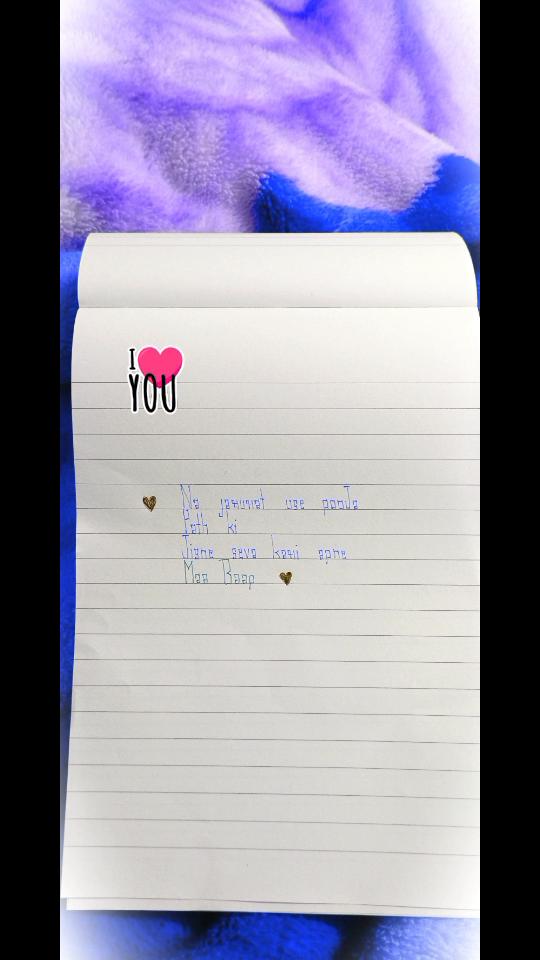 I
YOU
Na jarurat use pooja
Path ki
Jisne seva karii apne
Maa Baap